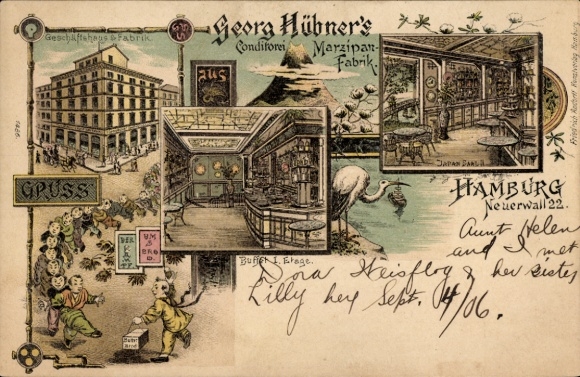 Geschäftshaus & Fabrik.
Georg Hübner's
Conditorei Marzipan-
Fabrik.
aus
Japan Saal II
GRUSS
HAMBURG
Neuerwall 22.
Buffet I. Etage.
Aunt Helen
and I met
Dora Neisflog & her sister
Lilly here Sept. 4/06.